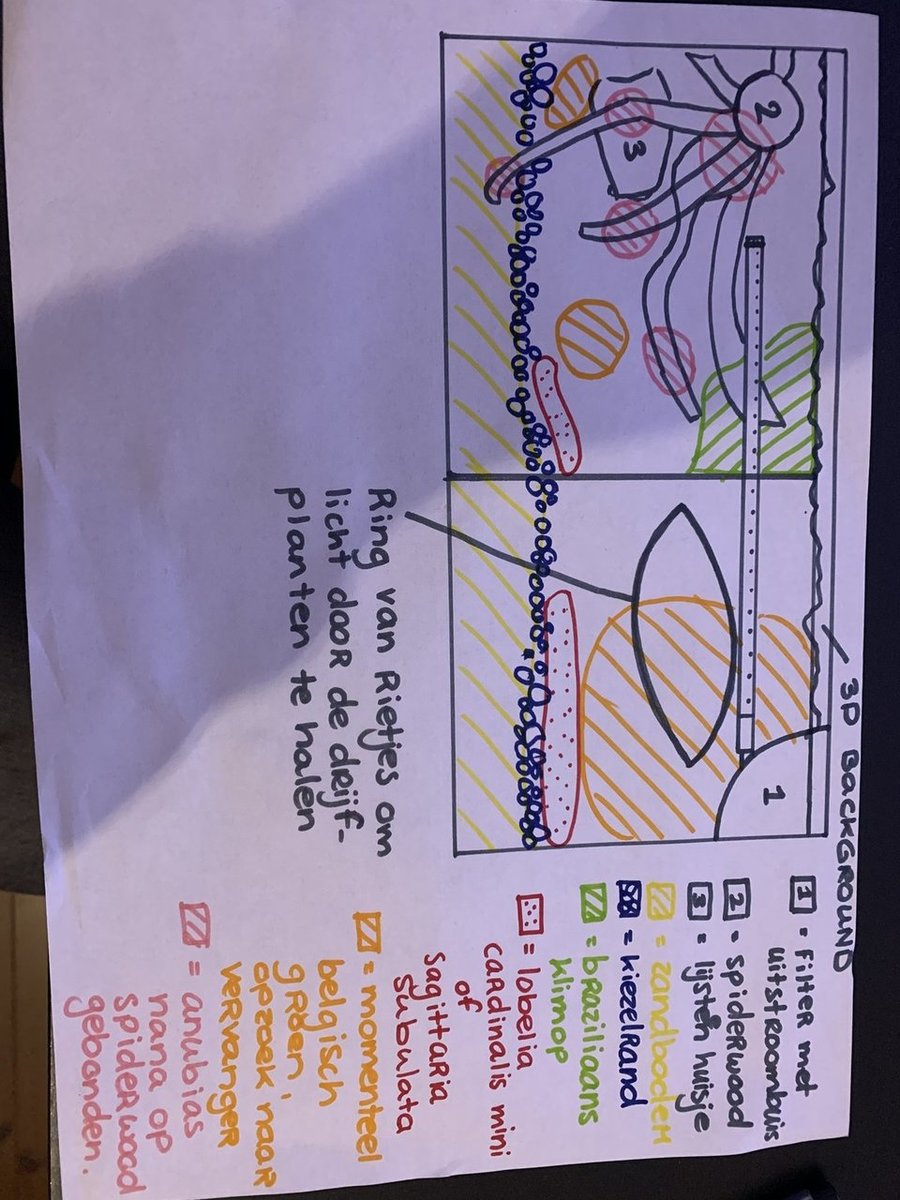 3D BACKGROUND
2
3
1
1 = Filter met
uitstroombuis
2 = spiderwood
3 = lijsten huisje
= zandbodem
= kiezelrand
= braziliaans
klimop
= lobelia
cardinalis mini
of
sagittaria
subulata
= momenteel
belgisch
groen,
opzoek naar
vervanger
= anubias
nana op
spiderwood
gebonden.
Ring van Rietjes om
licht door de drijf-
planten te halen